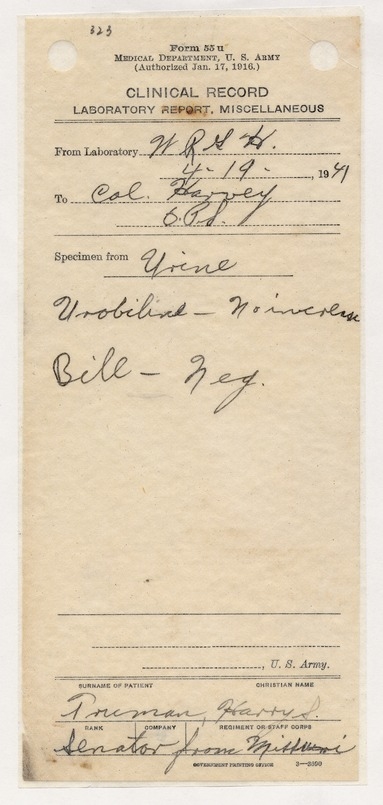 323
Form 55 u
MEDICAL DEPARTMENT, U. S. ARMY
(Authorized Jan. 17, 1916.)
CLINICAL RECORD
LABORATORY REPORT, MISCELLANEOUS
From Laboratory W R G H.
4-19-, 1941
To Col. Harvey
O.P.S.
Specimen from Urine
Urobiline - No increase
Bill - Neg.
, U. S. Army.
SURNAME OF PATIENT CHRISTIAN NAME
Truman, Harry S.
RANK COMPANY REGIMENT OR STAFF CORPS
Senator from Missouri
GOVERNMENT PRINTING OFFICE 3-3599